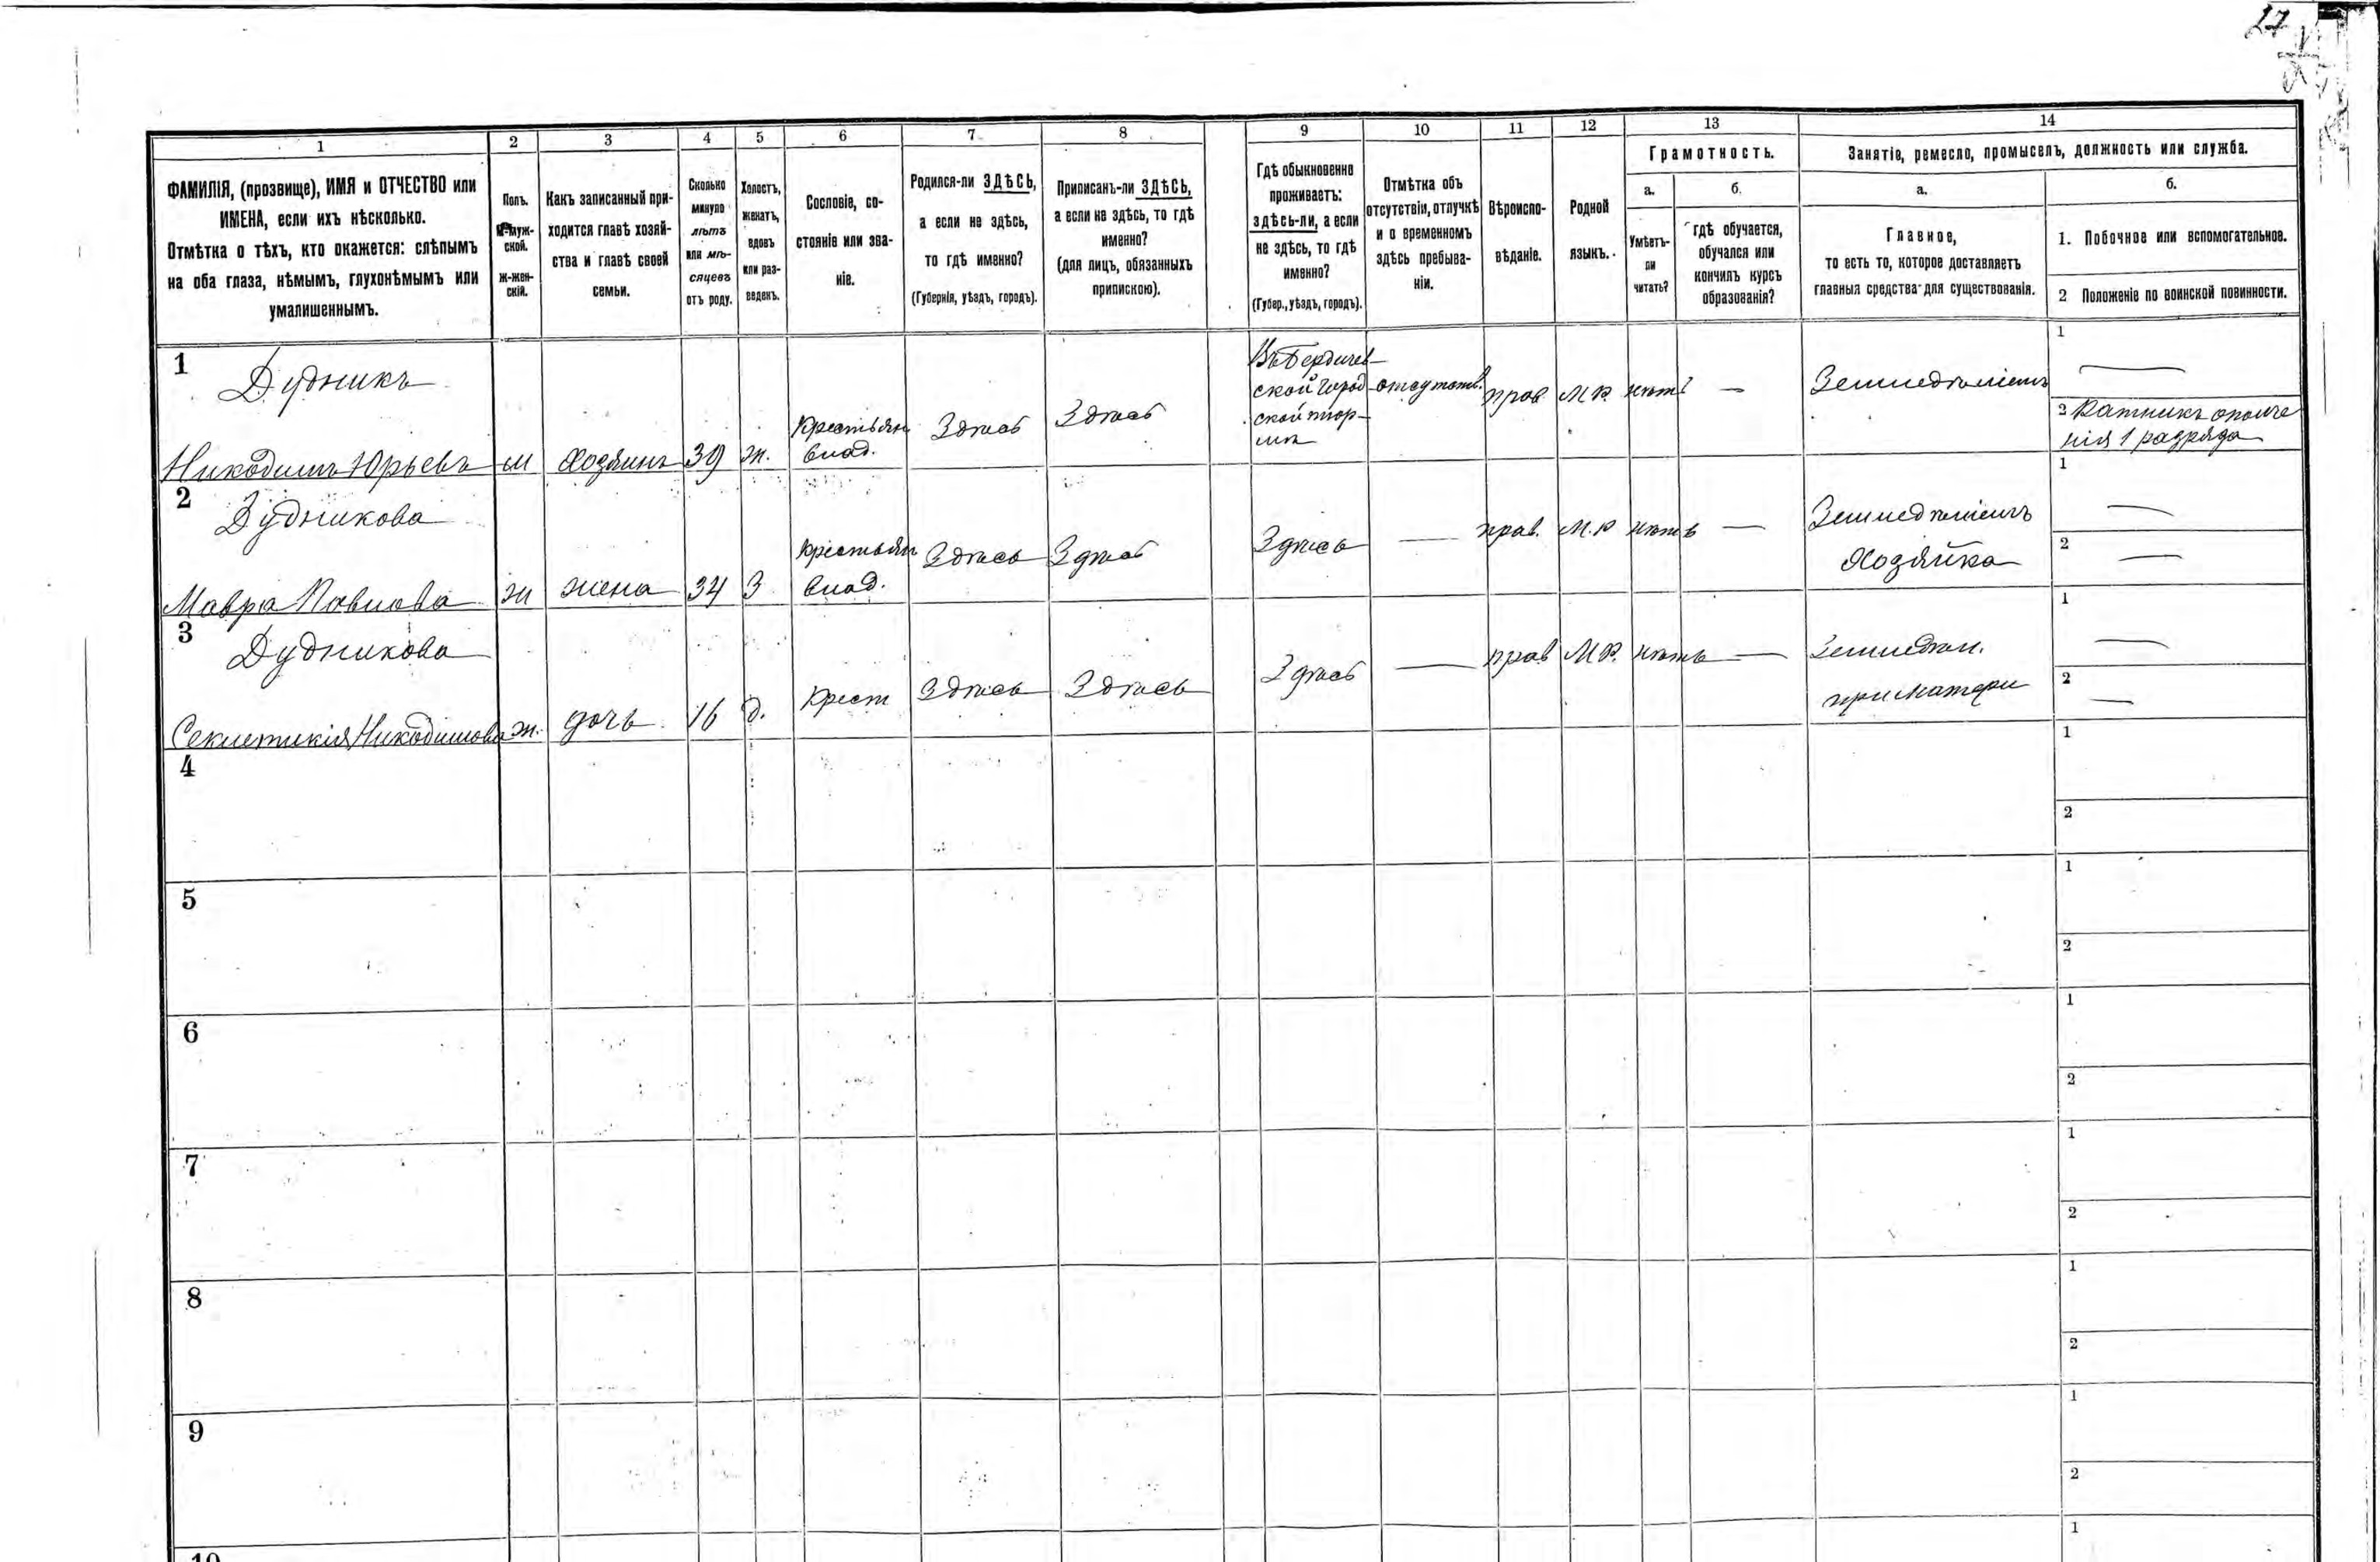 27
1
2
3
4
5
6
7
8
9
10
11
12
13
14
ФАМИЛІЯ, (прозвище), ИМЯ и ОТЧЕСТВО или
ИМЕНА, если ихъ нѣсколько.
Отмѣтка о тѣхъ, кто окажется: слѣпымъ
на оба глаза, нѣмымъ, глухонѣмымъ или
умалишеннымъ.
Полъ.
М-муж-
ской.
Ж-жен-
скій.
Какъ записанный при-
ходится главѣ хозяй-
ства и главѣ своей
семьи.
Сколько
минуло
лѣтъ
или мѣ-
сяцевъ
отъ роду.
Холостъ,
женатъ,
вдовъ
или раз-
веденъ.
Сословіе, со-
стояніе или зва-
ніе.
Родился-ли ЗДѢСЬ,
а если не здѣсь,
то гдѣ именно?
(Губернія, уѣздъ, городъ).
Приписанъ-ли ЗДѢСЬ,
а если не здѣсь, то гдѣ
именно?
(для лицъ, обязанныхъ
припискою).
Гдѣ обыкновенно
проживаетъ:
здѣсь-ли, а если
не здѣсь, то гдѣ
именно?
(Губер., уѣздъ, городъ).
Отмѣтка объ
отсутствіи, отлучкѣ
и о временномъ
здѣсь пребыва-
ніи.
Вѣроиспо-
вѣданіе.
Родной
языкъ.
Грамотность.
а.
Умѣетъ-
ли
читать?
б.
гдѣ обучается,
обучался или
кончилъ курсъ
образованія?
Занятіе, ремесло, промыселъ, должность или служба.
а.
Главное,
то есть то, которое доставляетъ
главныя средства для существованія.
б.
1. Побочное или вспомогательное.
2 Положеніе по воинской повинности.
1
Дудникъ
Никодимъ Юрьевъ
м
хозяинъ
39
ж.
Крестьян
влад.
Здѣсь
Здѣсь
Въ Бердичев
ской город
ской тюр-
мѣ
отсутств.
прав
М.Р.
нѣтъ
—
Земледѣліемъ
1
—
2 Ратникъ ополче
нія 1 разряда
2
Дудникова
Мавра Павлова
ж
жена
34
З
Крестьян
влад.
Здѣсь
Здѣсь
Здѣсь
—
прав.
М.Р
нѣтъ
—
Земледѣліемъ
Хозяйка
1
—
2
—
3
Дудникова
Секлетикія Никодимова
ж.
дочь
16
д.
Крест
Здѣсь
Здѣсь
Здѣсь
—
прав
М.Р.
нѣтъ
—
Земледѣл.
при матери
1
—
2
—
4
1
2
5
1
2
6
1
2
7
1
2
8
1
2
9
1
2
10
1